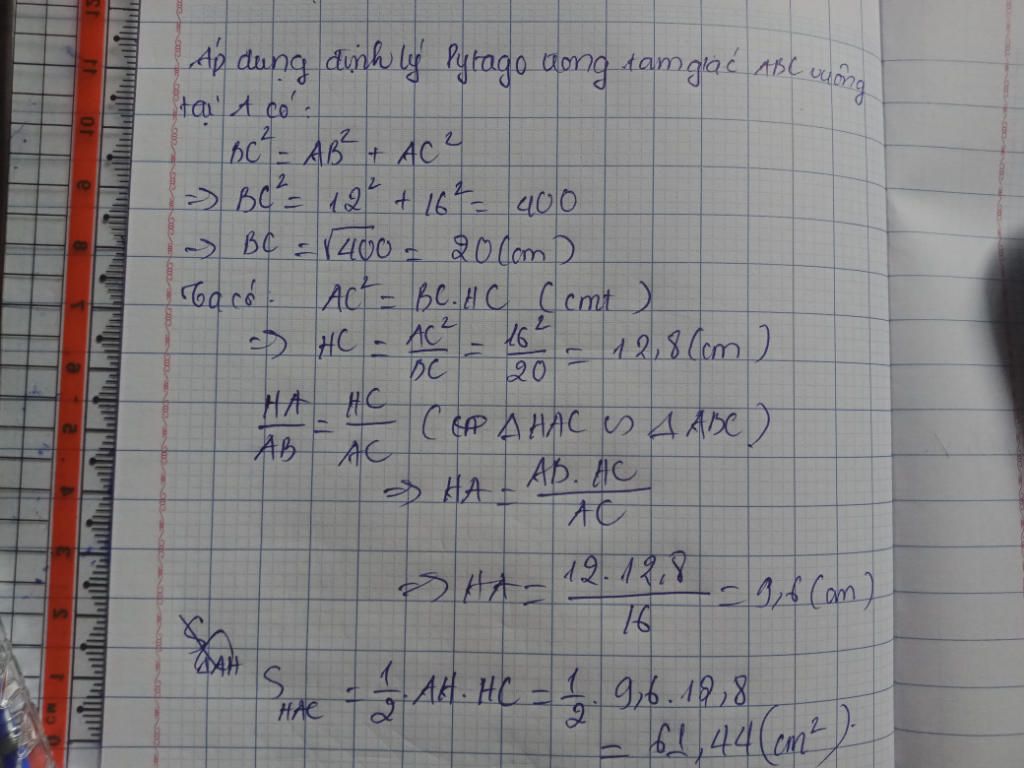 Áp dụng định lý Pytago trong tam giác ABC vuông
tại A có:
BC² = AB² + AC²
=> BC² = 12² + 16² = 400
=> BC = √400 = 20 (cm)
Ta có: AC² = BC.HC (cmt)
=> HC = AC²/BC = 16²/20 = 12,8 (cm)
HA/AB = HC/AC (Δ HAC ∽ Δ ABC)
=> HA = AB.HC/AC
=> HA = 12.12,8/16 = 9,6 (cm)
S HAC = 1/2.AH.HC = 1/2.9,6.12,8
= 61,44 (cm²).
12
11
10
9
8
7
6
5
4
3
2
1
0 CM